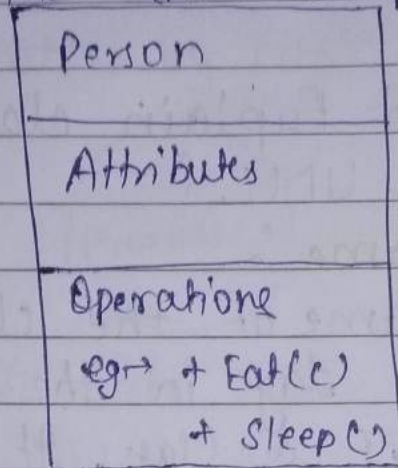 Person
Attributes
Operations
eg→ + Eat()
+ Sleep()